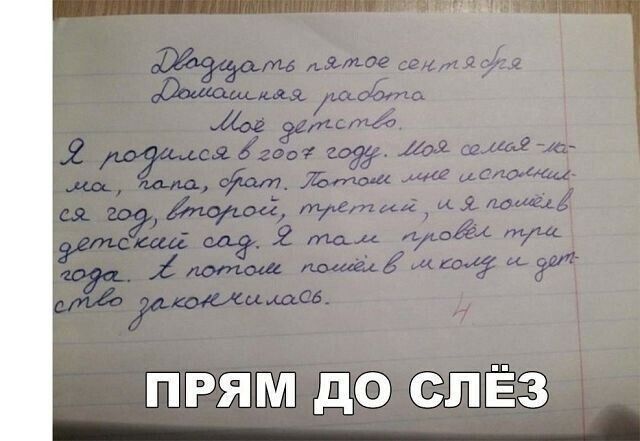 Двадцать пятое сентября
Домашняя работа
Моё детство.
Я родился в 2007 году. Моя семья - ма-
ма, папа, брат. Потом мне исполнил-
ся год, второй, третий, и я пошёл в
детский сад. Я там провёл три
года. А потом пошёл в школу и дет-
ство закончилась.
4
ПРЯМ ДО СЛЁЗ